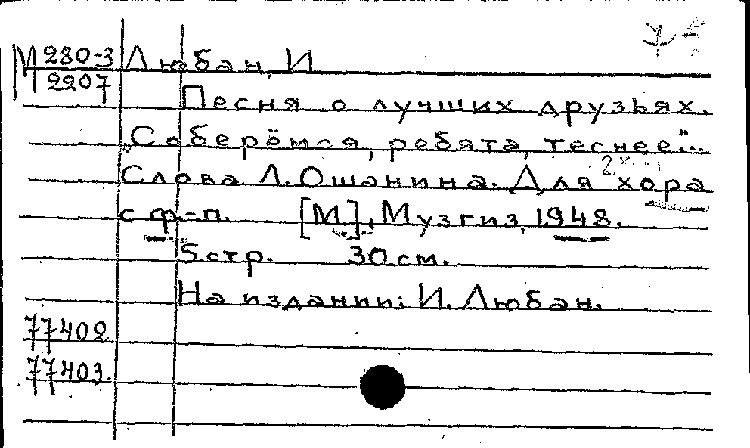 М 280-3 Любан, И
2207
Песня о лучших друзьях.
„Соберёмся, ребята, теснее"...
Слова Л. Ошанина. Для хора
с ф-п. [М], Музгиз, 1948.
5 стр. 30 см.
На издании: И. Любан.
77402
77403.